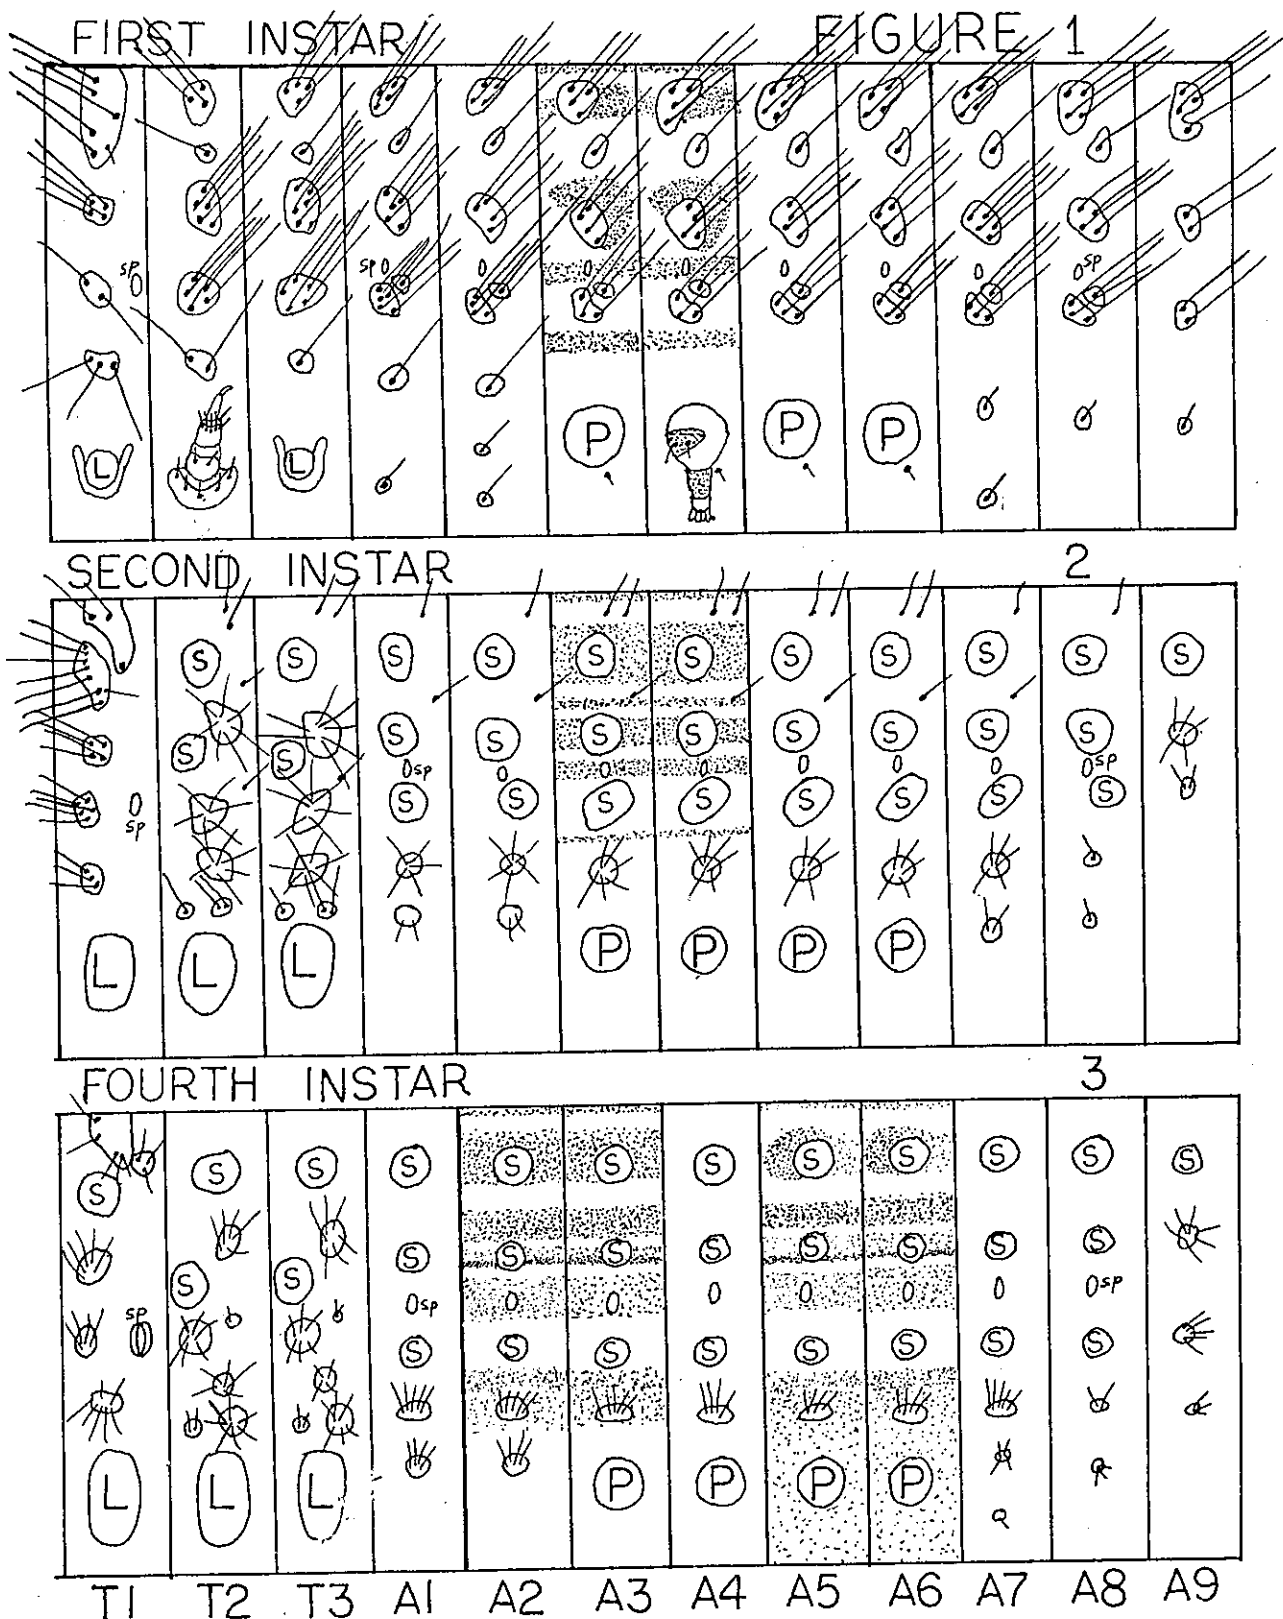 FIRST INSTAR FIGURE 1
sp sp sp
L L P P P
SECOND INSTAR 2
S S S S S S S S S S
S S S S S S S S S
sp sp
S S S S S S S S
sp
L L L P P P P
FOURTH INSTAR 3
S S S S S S S S S S S S
S S S S S S S S
S S
sp sp sp
S S S S S S S S
L L L P P P P
T1 T2 T3 A1 A2 A3 A4 A5 A6 A7 A8 A9